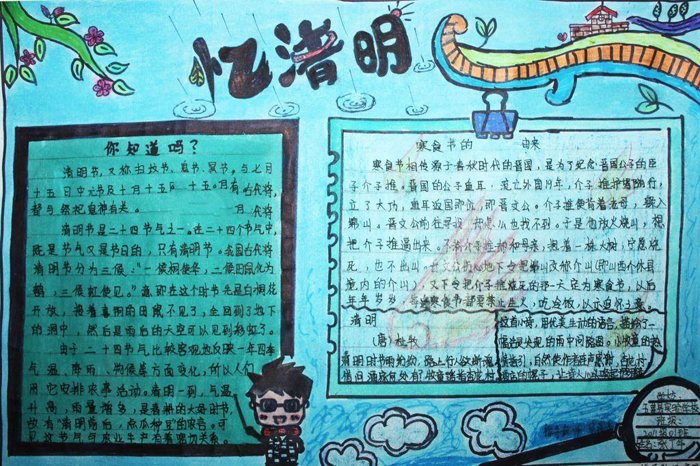 忆清明
你知道吗?
清明节,又称扫坟节、鬼节、冥节。与七月
十五日中元节及十月十五 十五 月有 古代称
都与祭祀鬼神有关。 月 代称
清明节是二十四节气之一。在二十四个节气中,
既是节气又是节日的,只有清明节。我国古代将
清明节分为三候:"一候桐使华,二候田鼠化为
鹌,三候虹使见。"意即在这个时节先是白桐花
开放,接着喜阴的田鼠不见了,全回到了地下
的洞中,然后是雨后的天空可以见到彩虹了。
由于二十四节气比较客观地反映一年四季
气温、降雨、物候等方面变化,所以人们
用它安排农事活动。清明一到,气温
升高,雨量增多,是春耕的大好时节,
故有"清明前后,点瓜种豆"的农谚。可
见这节气与农业生产有着密切关系。
寒食节的 由来
寒食节相传源于春秋时代的晋国,是为了纪念晋国公子的臣
子介子推。晋国的公子重耳,流亡外国 年,介子推护驾随行,
立了大功,重耳返国即位,即晋文公。介子推便背着老母,躲入
绵山。晋文公前往寻找,却怎么也找不到。于是他放火烧山,想
把介子推逼出来。不料介子推却和母亲,抱着一株大树,宁愿烧
死,也不出山。晋文公伤心地下令把绵山改称介山(即山西介休县
境内的介山),又下令把介子推烧死的那一天定为寒食节,以后
年年岁岁,每逢寒食节都要禁止生火,吃冷饭,以示追怀之意。
清明
(唐)杜牧
清明时节雨纷纷,路上行人欲断魂。
借问酒家何处有?牧童遥指杏花村。
这首小诗,用优美生动的语言,描绘了一